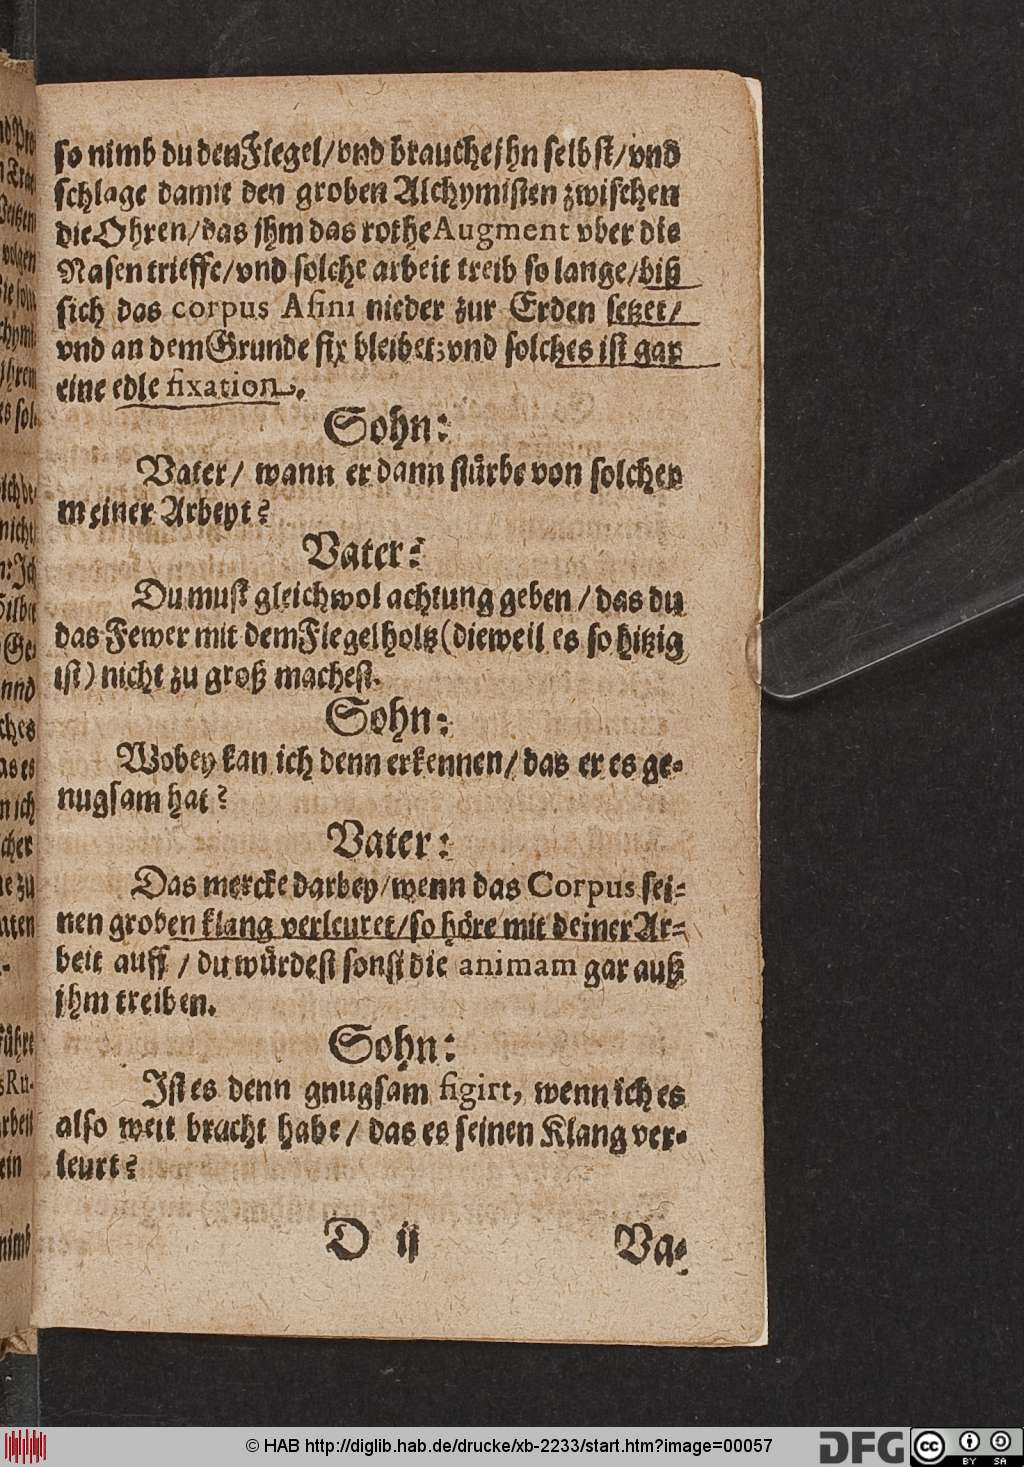 so nimb du den Flegel/vnd brauche jhn selbst/vnd
schlage damit den groben Alchymisten zwischen
die Ohren/das jhm das rothe Augment vber die
Nasen trieffe/vnd solche arbeit treib so lange/biß
sich das corpus Asini nieder zur Erden setzet/
vnd an dem Grunde fix bleibet; vnd solches ist gar
eine edle fixation.
Sohn:
Vater/ wann er dann stürbe von solcher
meiner Arbeyt?
Vater:
Du must gleichwol achtung geben/das du
das Fewer mit dem Flegelholtz (dieweil es so hitzig
ist) nicht zu groß machest.
Sohn:
Wobey kan ich denn erkennen/das er es ge-
nugsam hat?
Vater:
Das mercke darbey/wenn das Corpus sei-
nen groben klang verleuret/so höre mit deiner Ar-
beit auff/du würdest sonst die animam gar auß
jhm treiben.
Sohn:
Ist es denn gnugsam figirt, wenn ich es
also weit bracht habe/das es seinen Klang ver-
leurt?
D ij
Va-
© HAB http://diglib.hab.de/drucke/xb-2233/start.htm?image=00057
DFG
cc
BY SA